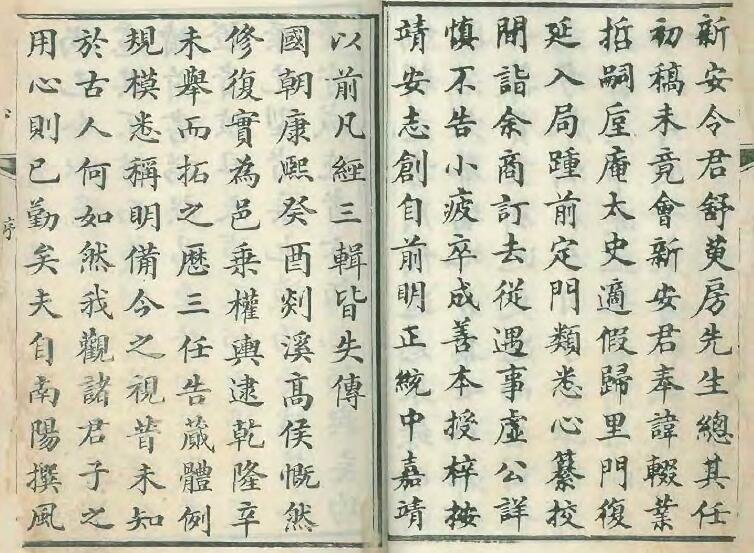 新安令君舒萸房先生總其任
初稿未竟會新安君奉諱輟業
哲嗣垕庵太史適假歸里門復
延入局踵前定門類悉心纂校
閒詣余商訂去從遇事虛公詳
慎不告小疲卒成善本授梓按
靖安志創自前明正統中嘉靖
以前凡經三輯皆失傳
國朝康熙癸酉剡溪高侯慨然
修復實為邑乘權輿逮乾隆卒
未舉而拓之歷三任告蕆體例
規模悉稱明備今之視昔未知
於古人何如然我觀諸君子之
用心則已勤矣夫自南陽撰風
序